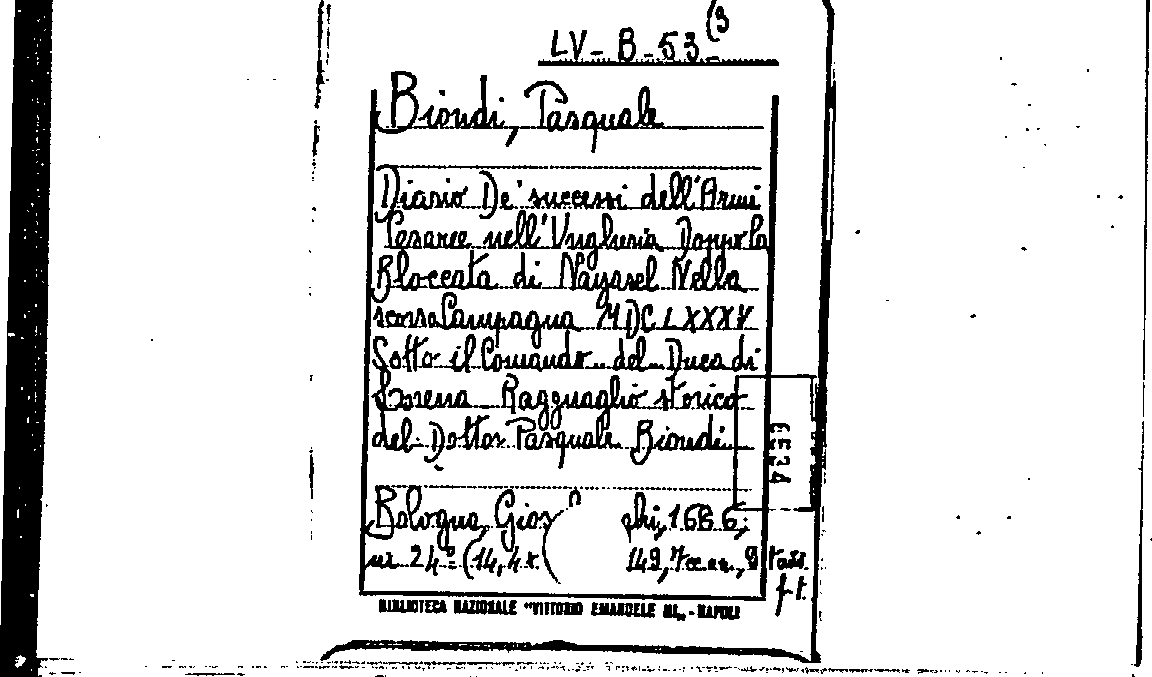 LV-B-53(3
Biondi, Pasquale
Diario De' successi dell'Armi
Cesaree nell'Ungheria Doppo la
Bloccata di Nayasel Nella
scorsa Campagna MDCLXXXV
Sotto il Comando del Duca di
Lorena Ragguaglio storico
del Dottor Pasquale Biondi
Bologna, Gios phi, 1686;
in 24º (14,4x 149, 7
f.t.
BIBLIOTECA NAZIONALE "VITTORIO EMANUELE III„ - NAPOLI